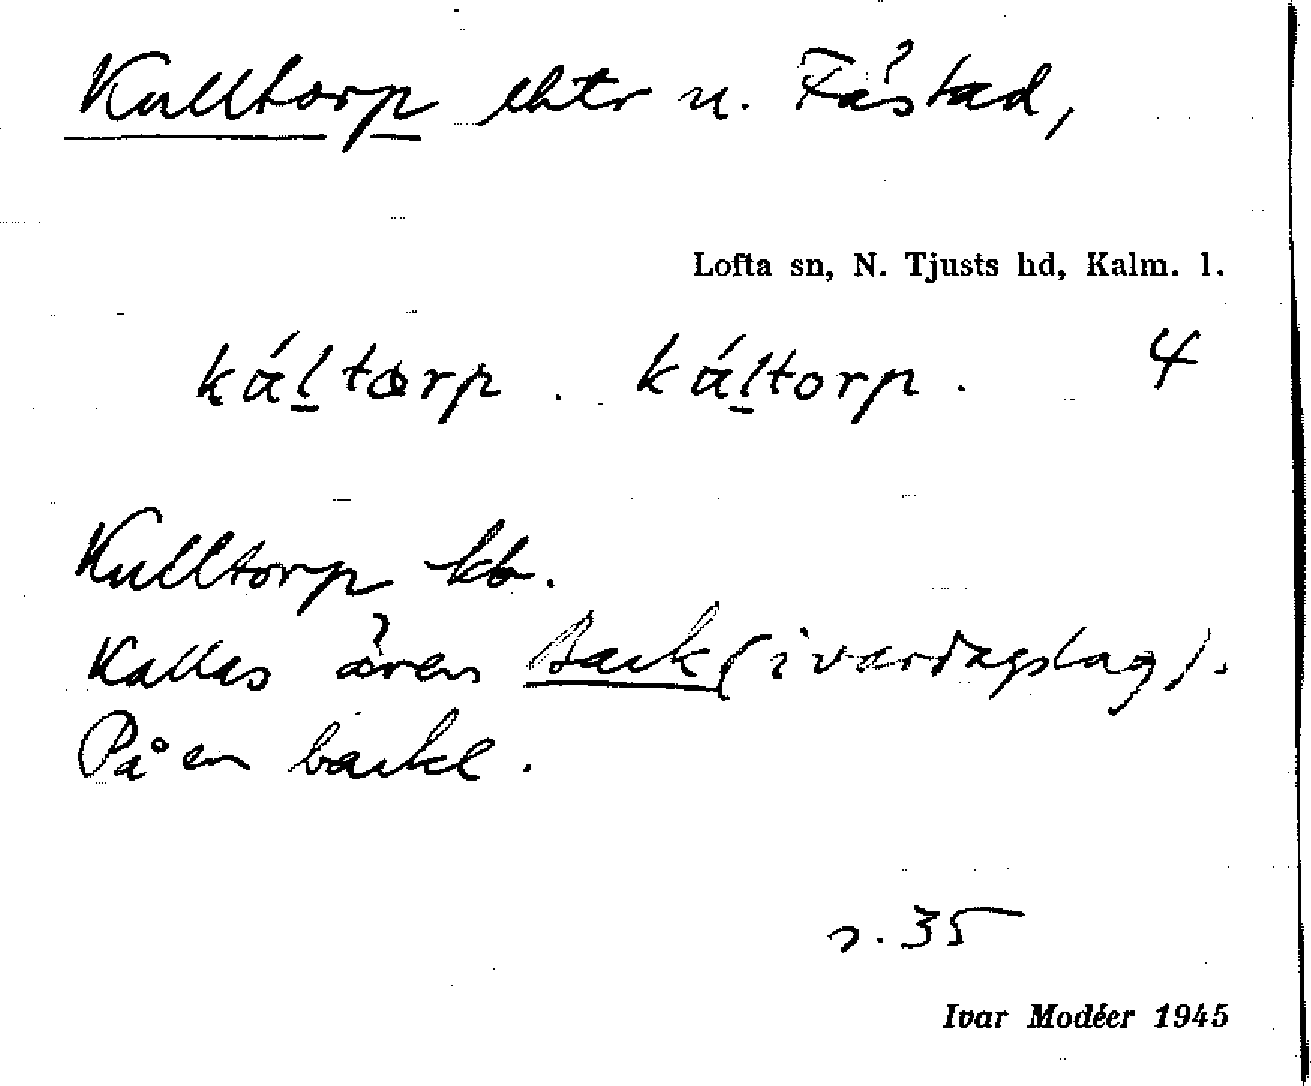 Kulltorp lhtr u. Fåstad,
Lofta sn, N. Tjusts hd, Kalm. l.
káltørp . káltorp . 4
Kulltorp kb.
Kallas även Back (i vardagslag).
På en backe.
s. 35
Ivar Modéer 1945